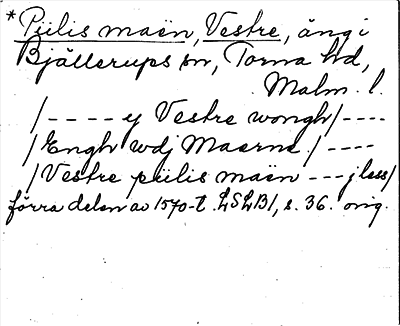 *Piilis maën, Vestre, äng i
Bjällerups sn, Torna hd,
Malm. l.
/---- y Vestre wongh/----
/Engh wdj Maerne/----
/Vestre piilis maën --- j lass/
förra delen av 1570-t. LSLB1, s. 36. orig.